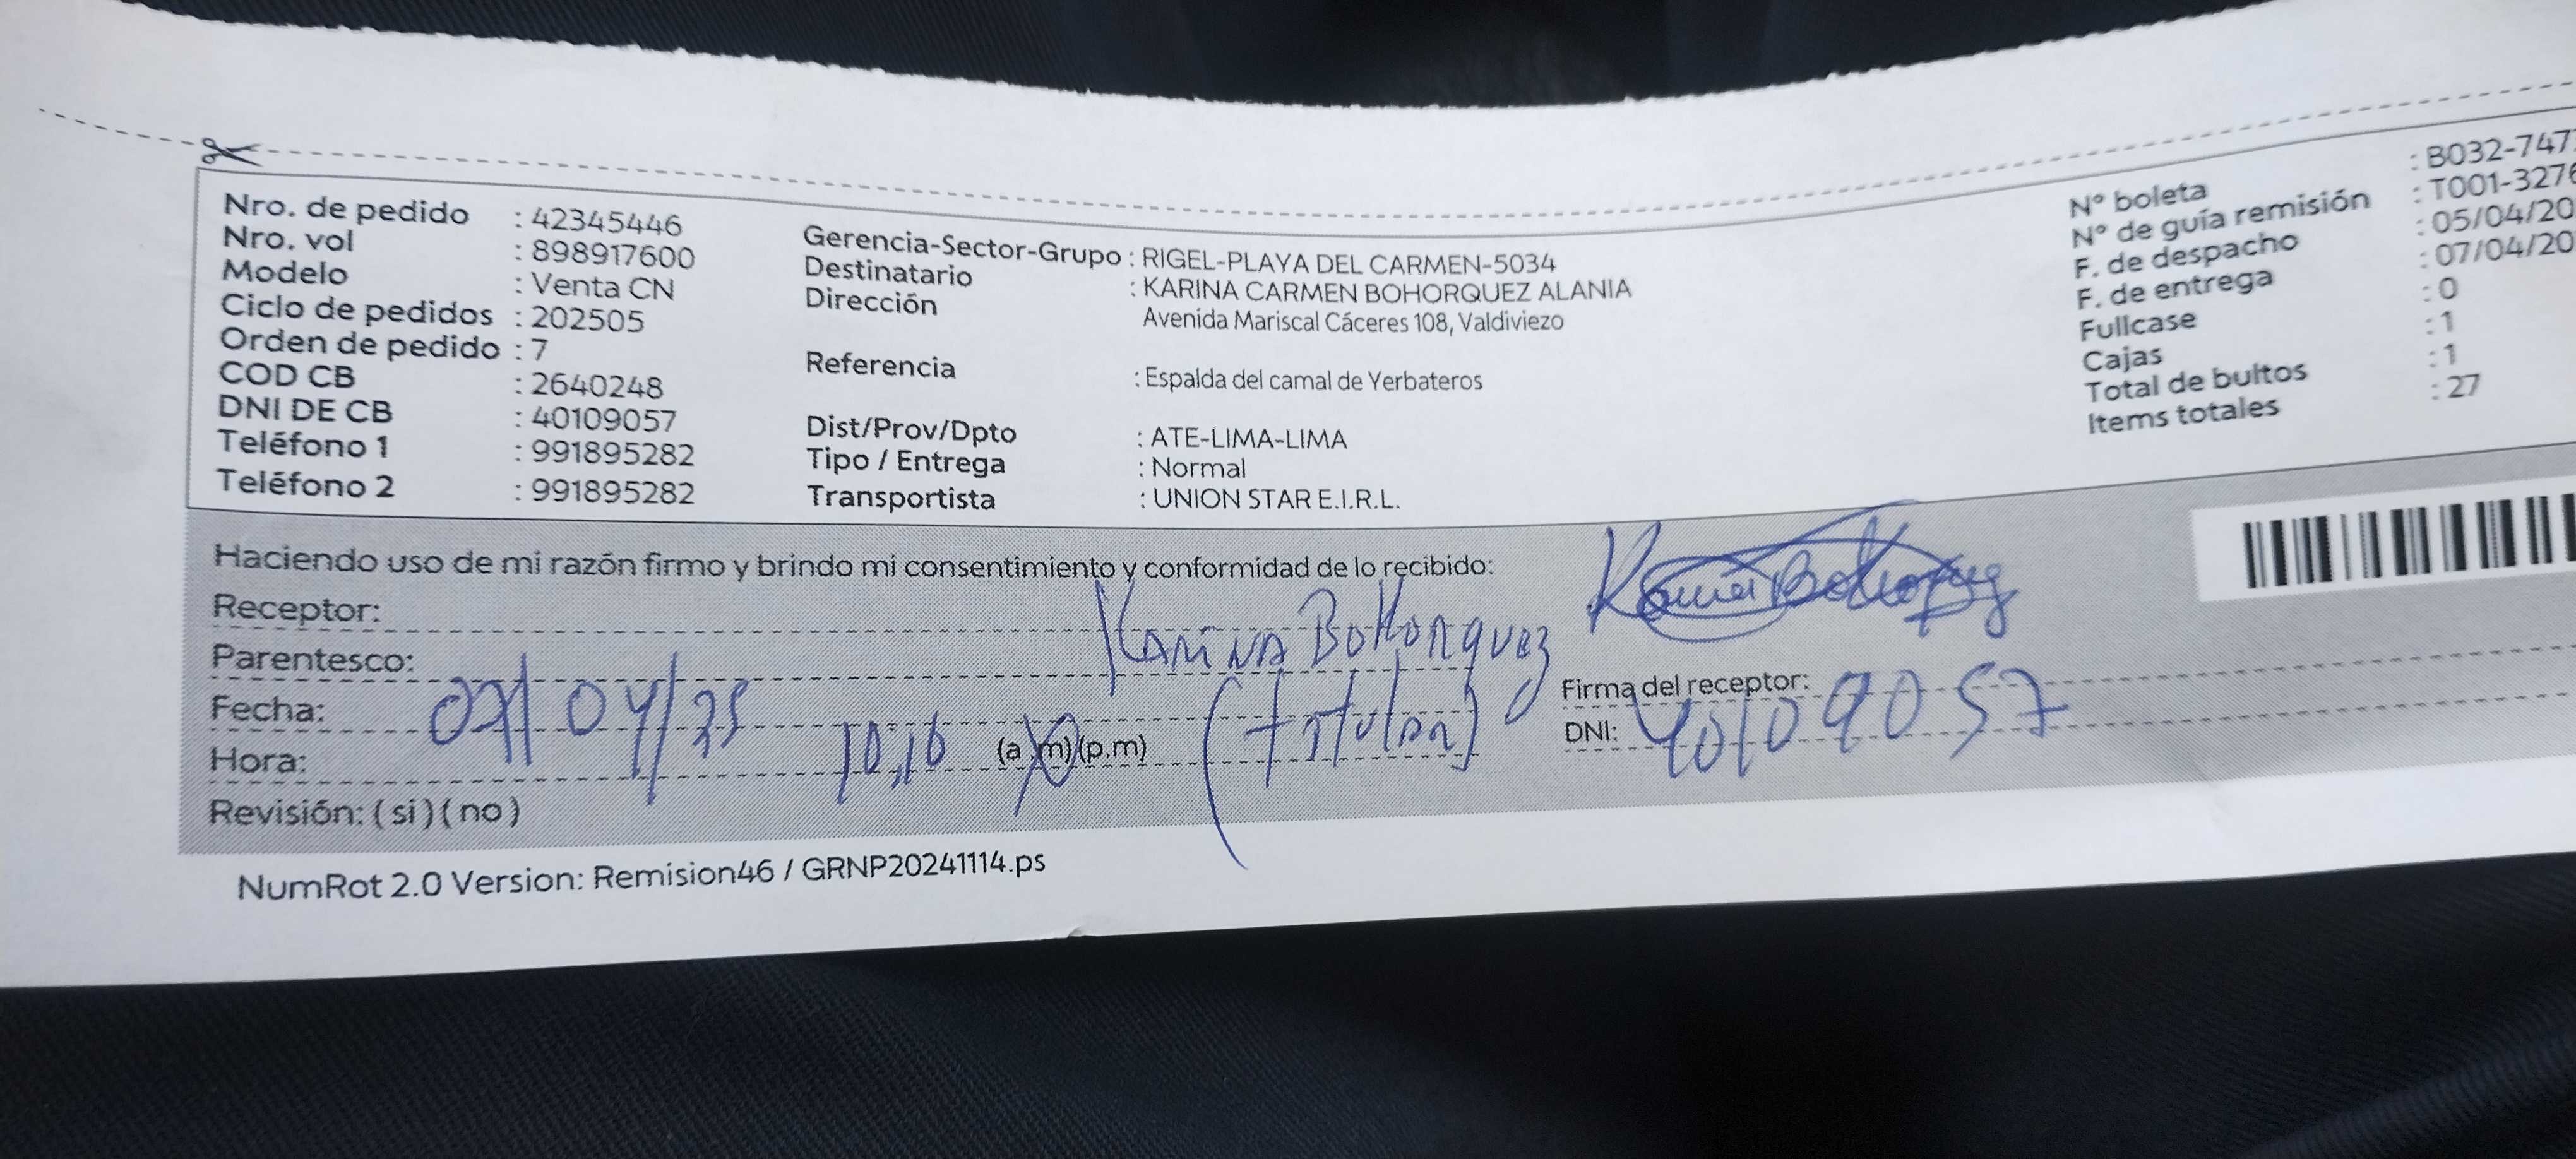 Nro. de pedido : 42345446
Nro. vol : 898917600
Modelo : Venta CN
Ciclo de pedidos : 202505
Orden de pedido : 7
COD CB : 2640248
DNI DE CB : 40109057
Teléfono 1 : 991895282
Teléfono 2 : 991895282
Gerencia-Sector-Grupo : RIGEL-PLAYA DEL CARMEN-5034
Destinatario : KARINA CARMEN BOHORQUEZ ALANIA
Dirección Avenida Mariscal Cáceres 108, Valdiviezo
Referencia : Espalda del camal de Yerbateros
Dist/Prov/Dpto : ATE-LIMA-LIMA
Tipo / Entrega : Normal
Transportista : UNION STAR E.I.R.L.
N° boleta : B032-747
N° de guía remisión : T001-3276
F. de despacho : 05/04/20
F. de entrega : 07/04/20
Fullcase : 0
Cajas : 1
Total de bultos : 1
Items totales : 27
Haciendo uso de mi razón firmo y brindo mi consentimiento y conformidad de lo recibido:
Receptor: Karina Bohorquez
Parentesco: (titular)
Fecha: 07/04/25
Hora: 10,16 (a.m)(p.m)
Revisión: ( si ) ( no )
Firma del receptor:
DNI: 40109057
NumRot 2.0 Version: Remision46 / GRNP20241114.ps